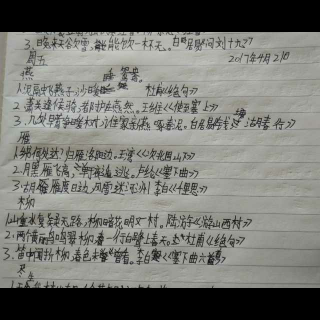 3.晚来天欲雪,能饮一杯无。白居易《问刘十九》
周五 2017年4月21日
燕
1.泥融飞燕子,沙暖睡鸳鸯。杜甫《绝句》
2.萧关逢候骑,都护在燕然。王维《使至塞上》
3.几处早莺争暖树,谁家新燕啄春泥。白居易《钱塘湖春行》
雁
1.乡书何处达?归雁洛阳边。王湾《次北固山下》
2.月黑雁飞高,单于夜遁逃。卢纶《塞下曲》
3.雁度日边,风雪迷
柳
1.山重水复疑无路,柳暗花明又一村。陆游《游山西村》
2.两个黄鹂鸣翠柳,一行白鹭上青天。杜甫《绝句》
3.笛中闻折柳,春色未曾看。李白《塞下曲六首》